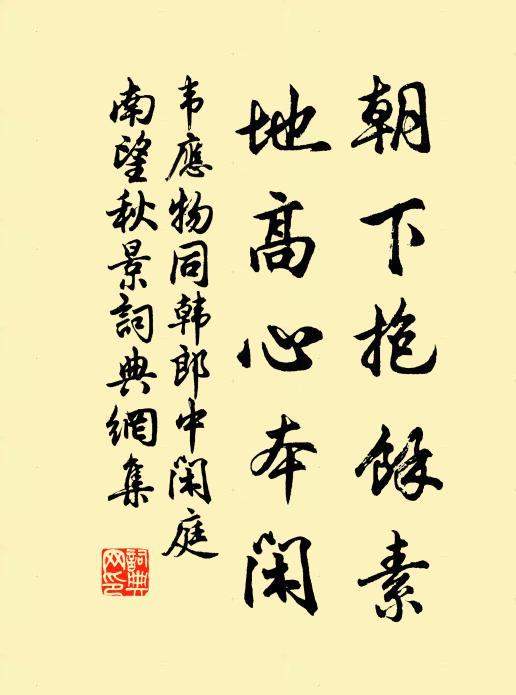 朝下抱餘素
地高心本閑
韦應物同韩郎中閑庭
南望秋景詞典網集
詞典
网印